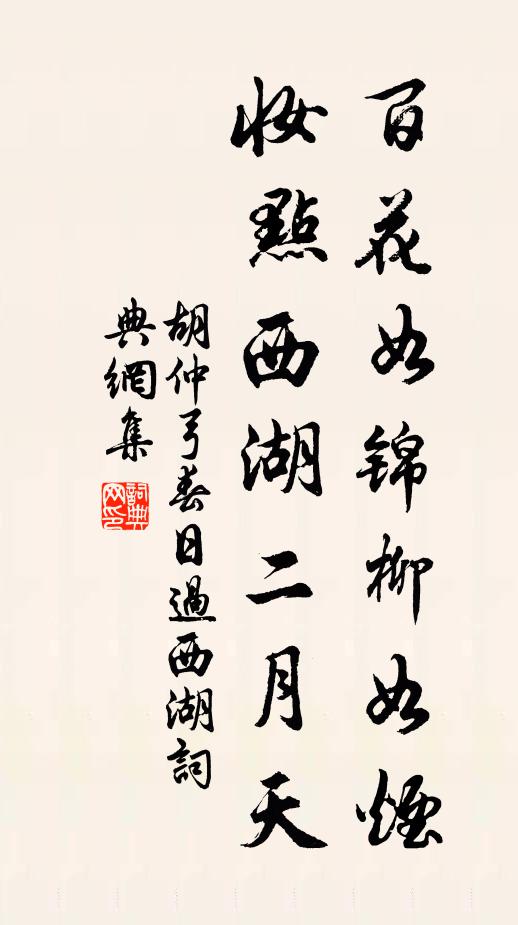 百花如锦柳如烟
妝點西湖二月天
胡仲弓春日過西湖詞
典網集
詞典网印